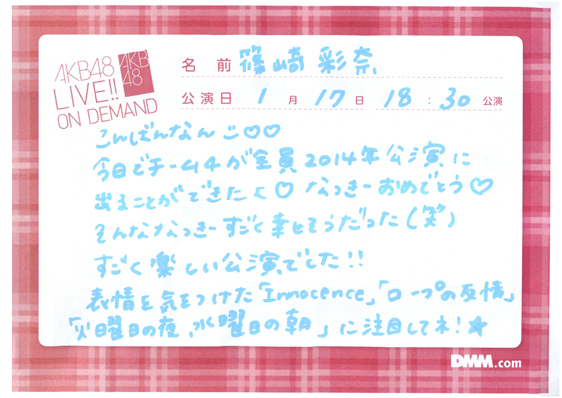 AKB48
LIVE!!
ON DEMAND
AKB
48
名前 篠崎 彩奈
公演日 1月17日 18:30公演
こんばんなん♡♡
今日でチーム4が全員2014年公演に
出ることができたよ♡ なっきーおめでとう♡
そんななっきーすごく幸せそうだった(笑)
すごく楽しい公演でした!!
表情を気をつけた「Innocence」「ロープの友情」
「火曜日の夜、水曜日の朝」に注目してネ!☆
DMM.com